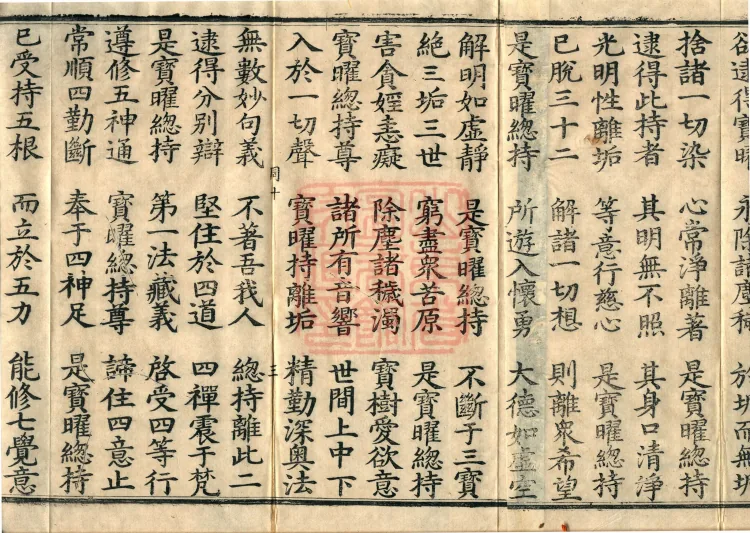 欲逮得寶曜 永除諸塵穢 於垢而無垢
捨諸一切染 心常淨離著 是寶曜總持
逮得此持者 其明無不照 其身口清淨
光明性離垢 等意行慈心 是寶曜總持
已脫三十二 解諸一切想 則離衆希望
是寶曜總持 所遊入懷勇 大德如虛空
解明如虛靜 是寶曜總持 不斷于三寶
絶三垢三世 窮盡衆苦原 是寶曜總持
害貪婬恚癡 除塵諸穢濁 寶樹愛欲意
寶曜總持尊 諸所有音響 世間上中下
入於一切聲 寶曜持離垢 精勤深奧法
同十 三
無數妙句義 不著吾我人 總持離此二
逮得分別辯 堅住於四道 四禪震于梵
是寶曜總持 第一法藏義 啓受四等行
遵修五神通 寶曜總持尊 諦住四意止
常順四勤斷 奉于四神足 是寶曜總持
已受持五根 而立於五力 能修七覺意